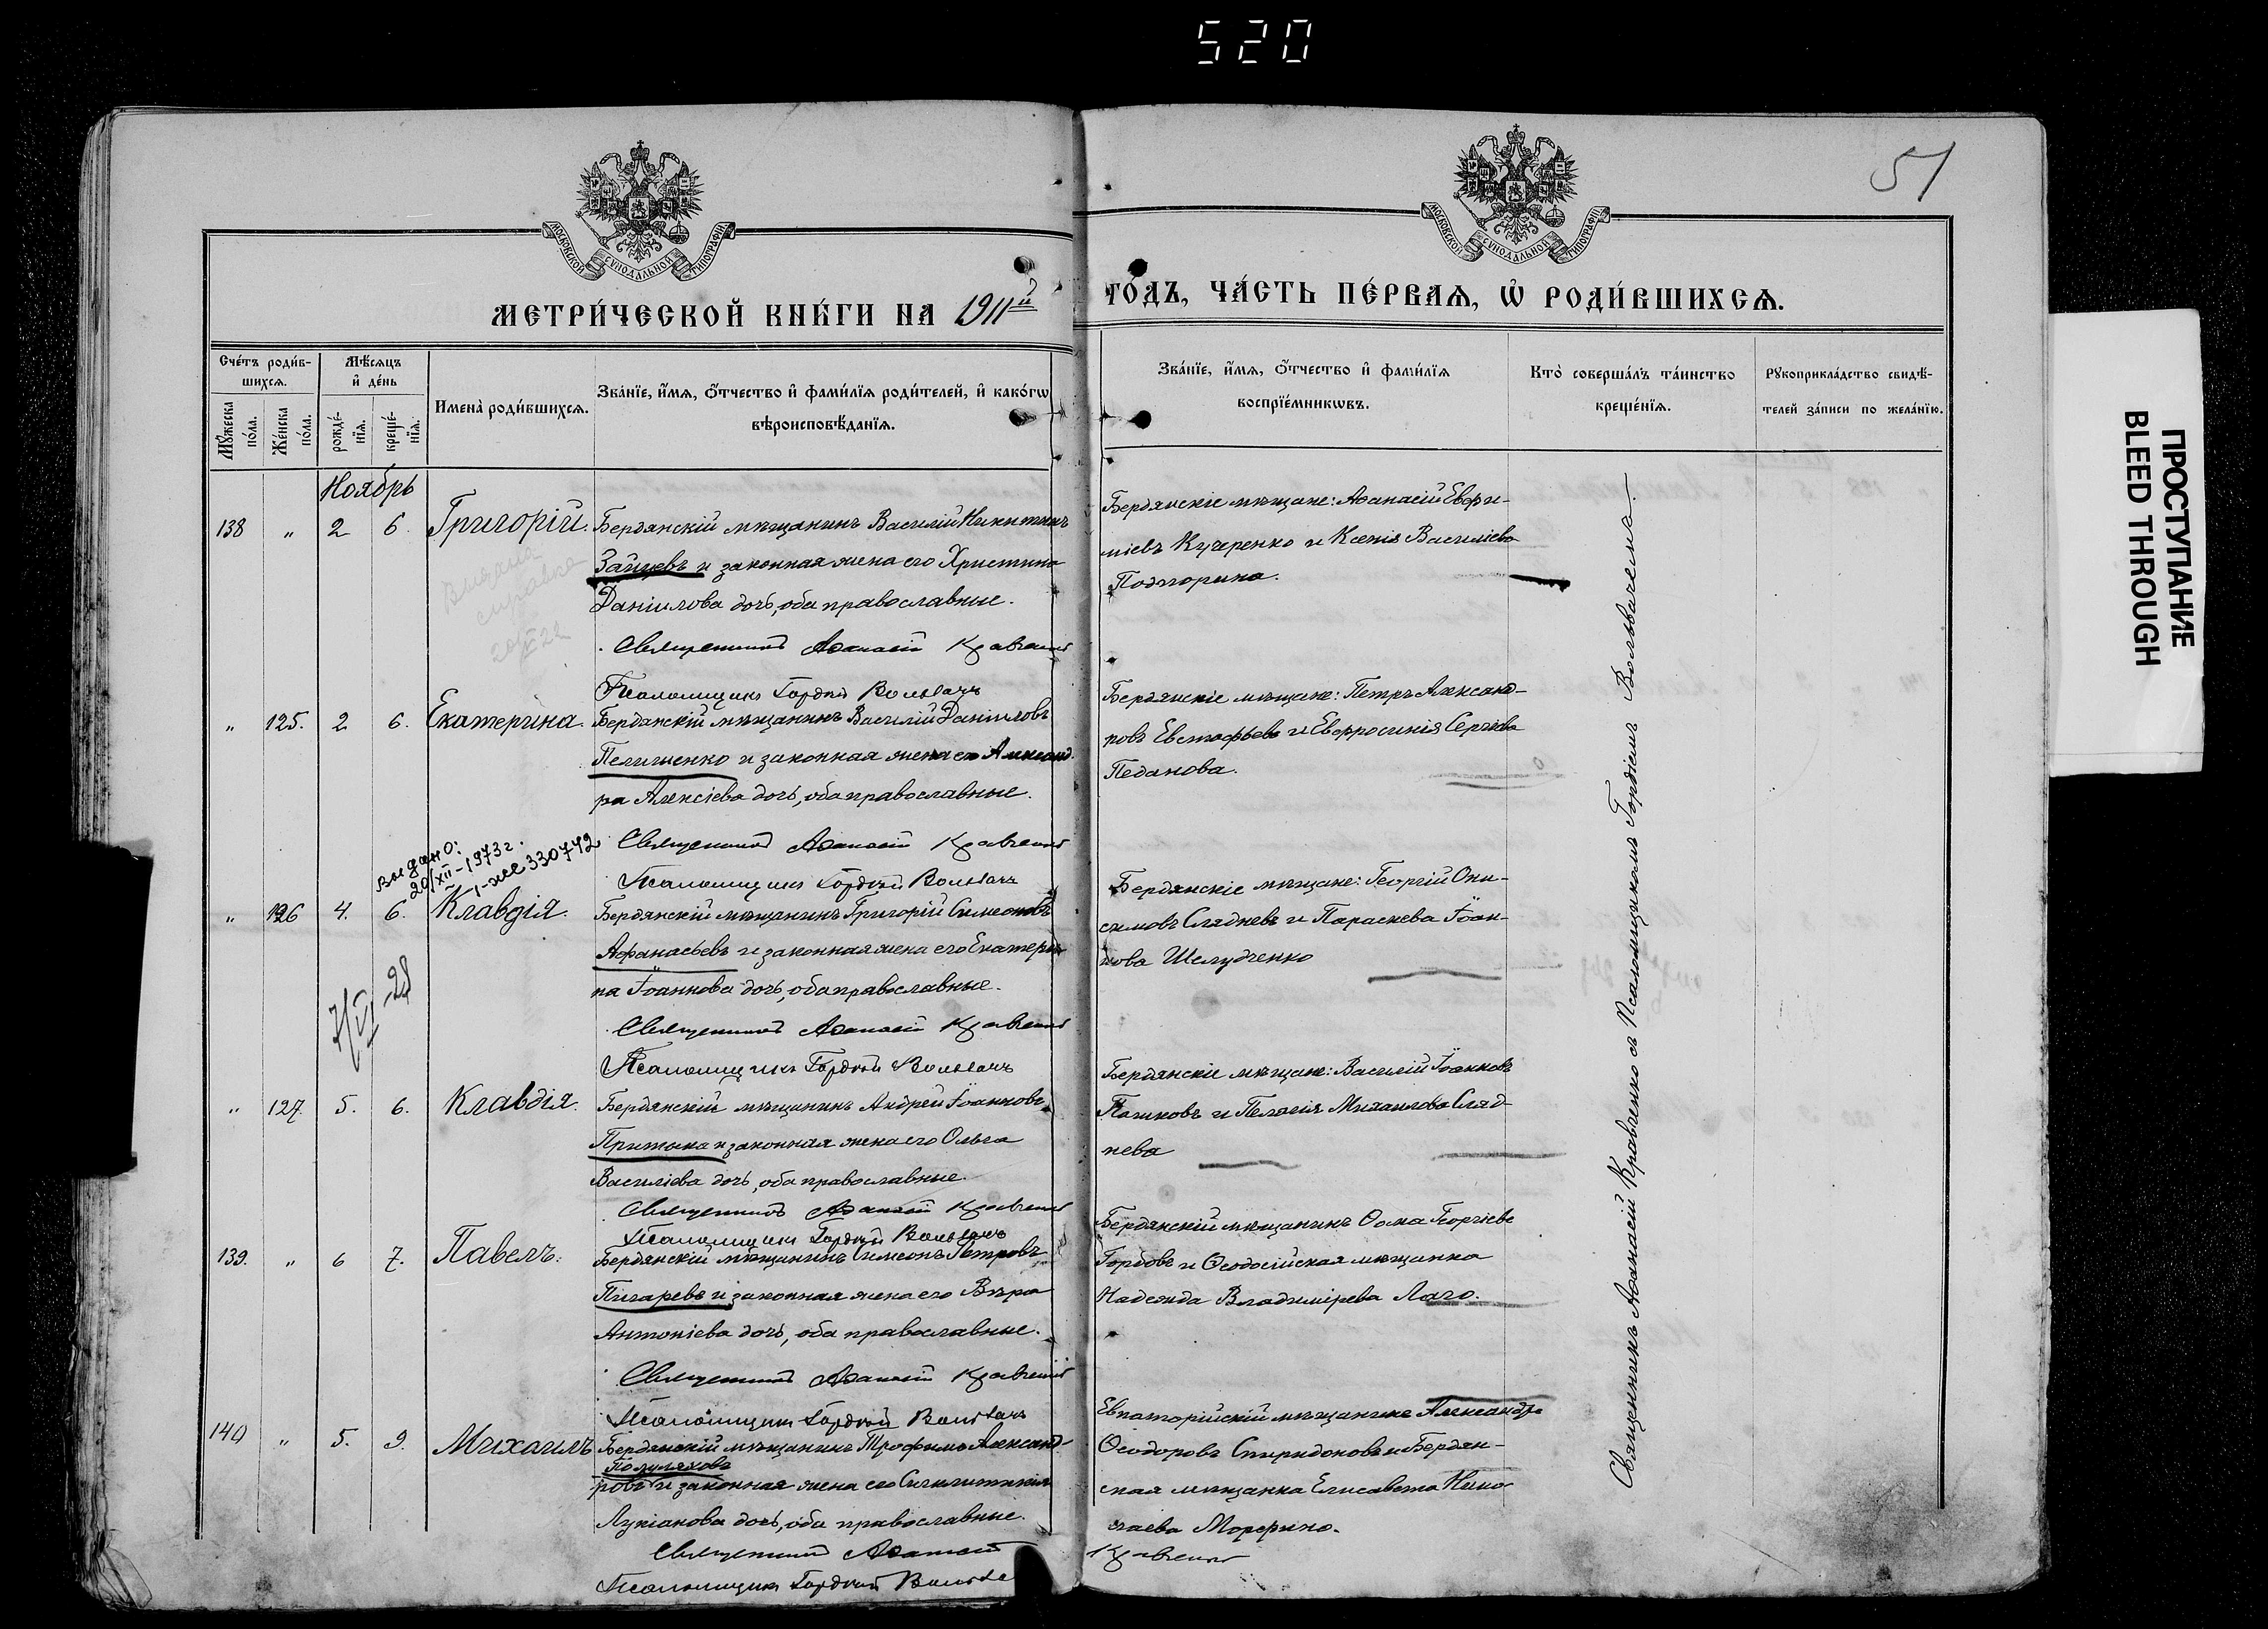 520
51
МОСКОВСКОЙ СѴНОДАЛЬНОЙ ТИПОГРАФІИ
МОСКОВСКОЙ СѴНОДАЛЬНОЙ ТИПОГРАФІИ
МЕТРИ́ЧЕСКОЙ КНИ́ГИ НА 1911й
ГО́ДЪ, ЧА́СТЬ ПЕ́РВАѦ, Ѽ РОДИ́ВШИХСѦ.
Сче́тъ роди́в-
шихсѧ.
Мꙋжеска по́ла.
Же́нска по́ла.
Мѣ́сѧцъ
и҆ де́нь
рожде́-
нїѧ.
креще́-
нїѧ.
Имена̀ роди́вшихсѧ.
Зва́нїе, и҆́мѧ, ѻ҆́тчество и҆ фами́лїѧ роди́телей, и҆ како́гѡ
вѣроисповѣ́данїѧ.
Зва́нїе, и҆́мѧ, ѻ҆́тчество и҆ фами́лїѧ
воспрїе́мникѡвъ.
Кто̀ соверша́лъ та́инство
креще́нїѧ.
Рꙋкоприкла́дство свидѣ́-
телей за́писи по жела́нїю.
Ноябрь
138 " 2 6. Григорій. Бердянскій мѣщанинъ Василій Никитинъ
Зайцевъ и законная жена его Христина
Даніилова дочь, оба православные.
Священникъ Аѳанасій Кравченко
Псаломщикъ Гордій Вольвачъ
Бердянскіе мѣщане: Аѳанасій Евфи-
міевъ Кучеренко и Ксенія Василіева
Подгорина.
Выдана
справка
" 125. 2 6. Екатерина. Бердянскій мѣщанинъ Василій Даніиловъ
Пелишенко и законная жена его Александ-
ра Алексіева дочь, оба православные.
Священникъ Аѳанасій Кравченко
Псаломщикъ Гордій Вольвачъ
Бердянскіе мѣщане: Петръ Александ-
ровъ Евстафьевъ и Евфросинія Сергіева
Педанова.
Выдано:
20/XII-1973г.
I-ЖС 330742
" 126 4. 6. Клавдія. Бердянскій мѣщанинъ Григорій Симеоновъ
Афанасьевъ и законная жена его Екатери-
на Іоаннова дочь, оба православные.
Священникъ Аѳанасій Кравченко
Псаломщикъ Гордій Вольвачъ
Бердянскіе мѣщане: Георгій Они-
симовъ Слядневъ и Параскева Іоан-
нова Шелудченко
" 127. 5. 6. Клавдія. Бердянскій мѣщанинъ Андрей Іоанновъ
Притыка и законная жена его Ольга
Василіева дочь, оба православные.
Священникъ Аѳанасій Кравченко
Псаломщикъ Гордій Вольвачъ
Бердянскіе мѣщане: Василій Іоанновъ
Пашковъ и Пелагія Михаилова Сляд-
нева
139. " 6 7. Павелъ. Бердянскій мѣщанинъ Симеонъ Петровъ
Пигаревъ и законная жена его Вѣра
Антоніева дочь, оба православные.
Священникъ Аѳанасій Кравченко
Псаломщикъ Гордій Вольвачъ
Бердянскій мѣщанинъ Ѳома Георгіевъ
Горбовъ и Ѳеодосійская мѣщанка
Надежда Владимірева Лаго.
140 " 5. 9. Михаилъ Бердянскій мѣщанинъ Трофимъ Александ-
Полуляховъ
ровъ и законная жена его Синклитикія
Лукіанова дочь, оба православные.
Священникъ Аѳанасій Кравченко
Псаломщикъ Гордій Вольва
Евпаторійскій мѣщанинъ Александръ
Ѳеодоровъ Спиридоновъ и Бердян-
ская мѣщанка Елисавета Нико-
лаева Морфино.
Священникъ Аѳанасій Кравченко съ Псаломщикомъ Гордіемъ Вольвачемъ.
ПРОСТУПАНИЕ
BLEED THROUGH